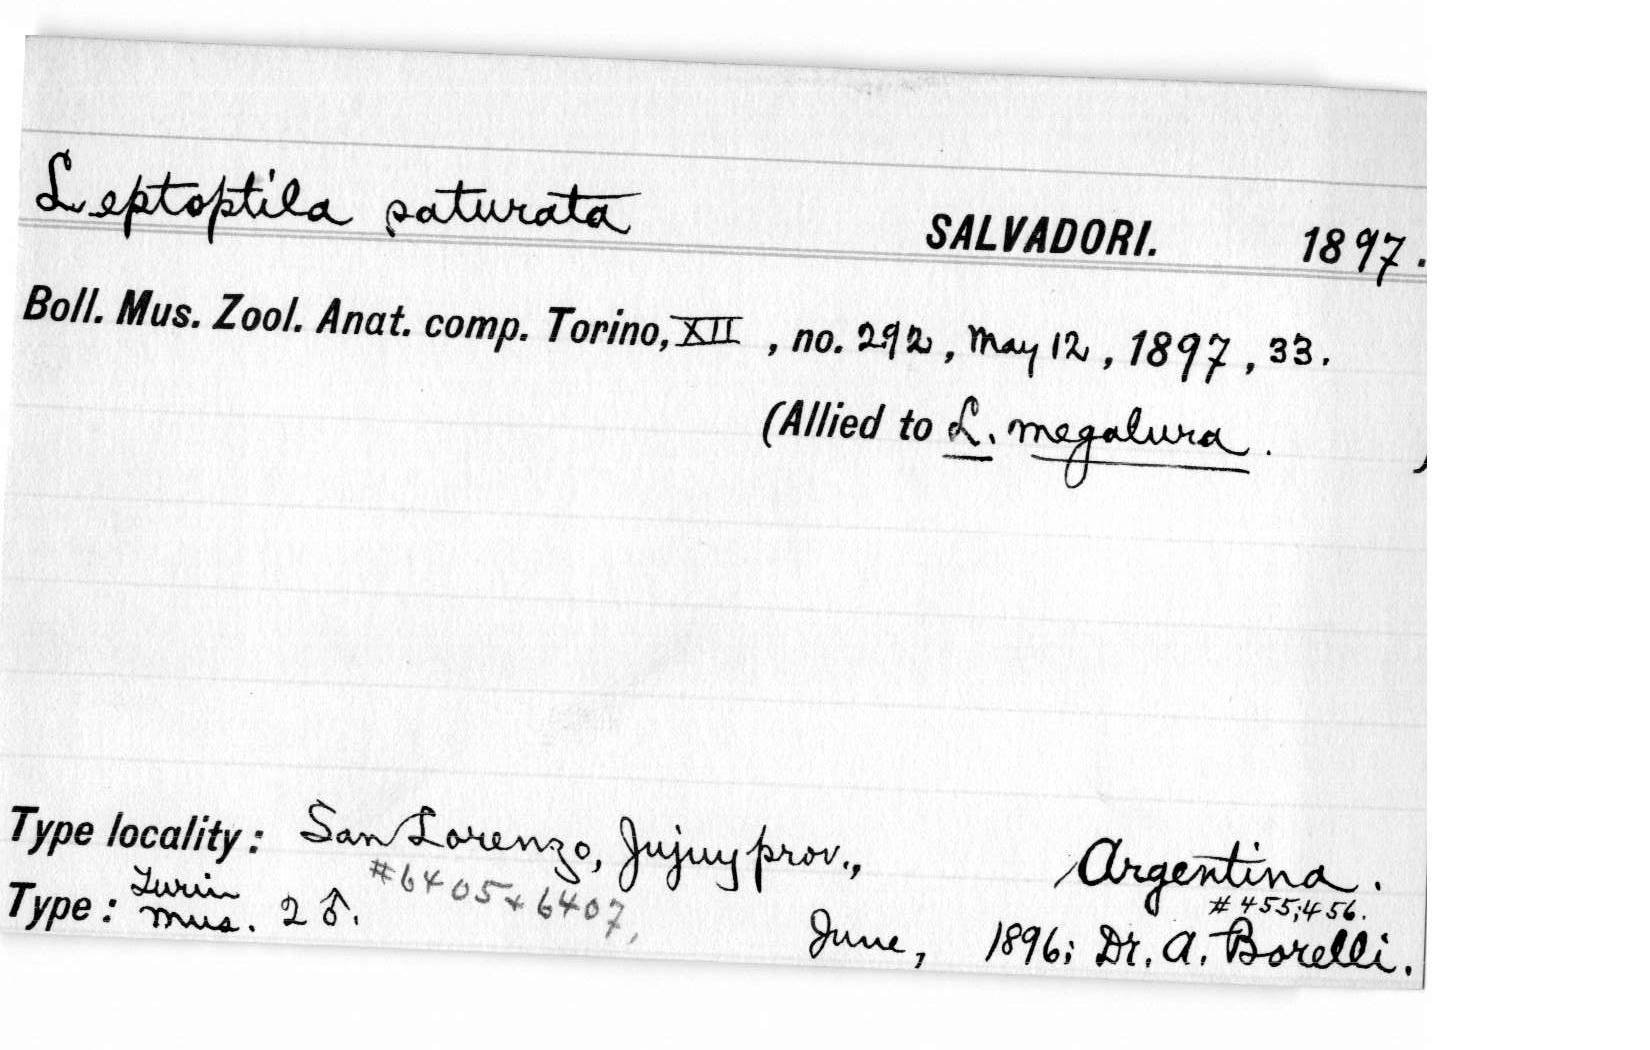 Leptoptila saturata SALVADORI. 1897.
Boll. Mus. Zool. Anat. comp. Torino, XII, no. 292, May 12, 1897, 33.
(Allied to L. megalura. )
Type locality: San Lorenzo, Jujuy prov., Argentina.
#6405+6407, #455;456.
Type: Turin Mus. 2 ♂. June, 1896; Dr. A. Borelli.